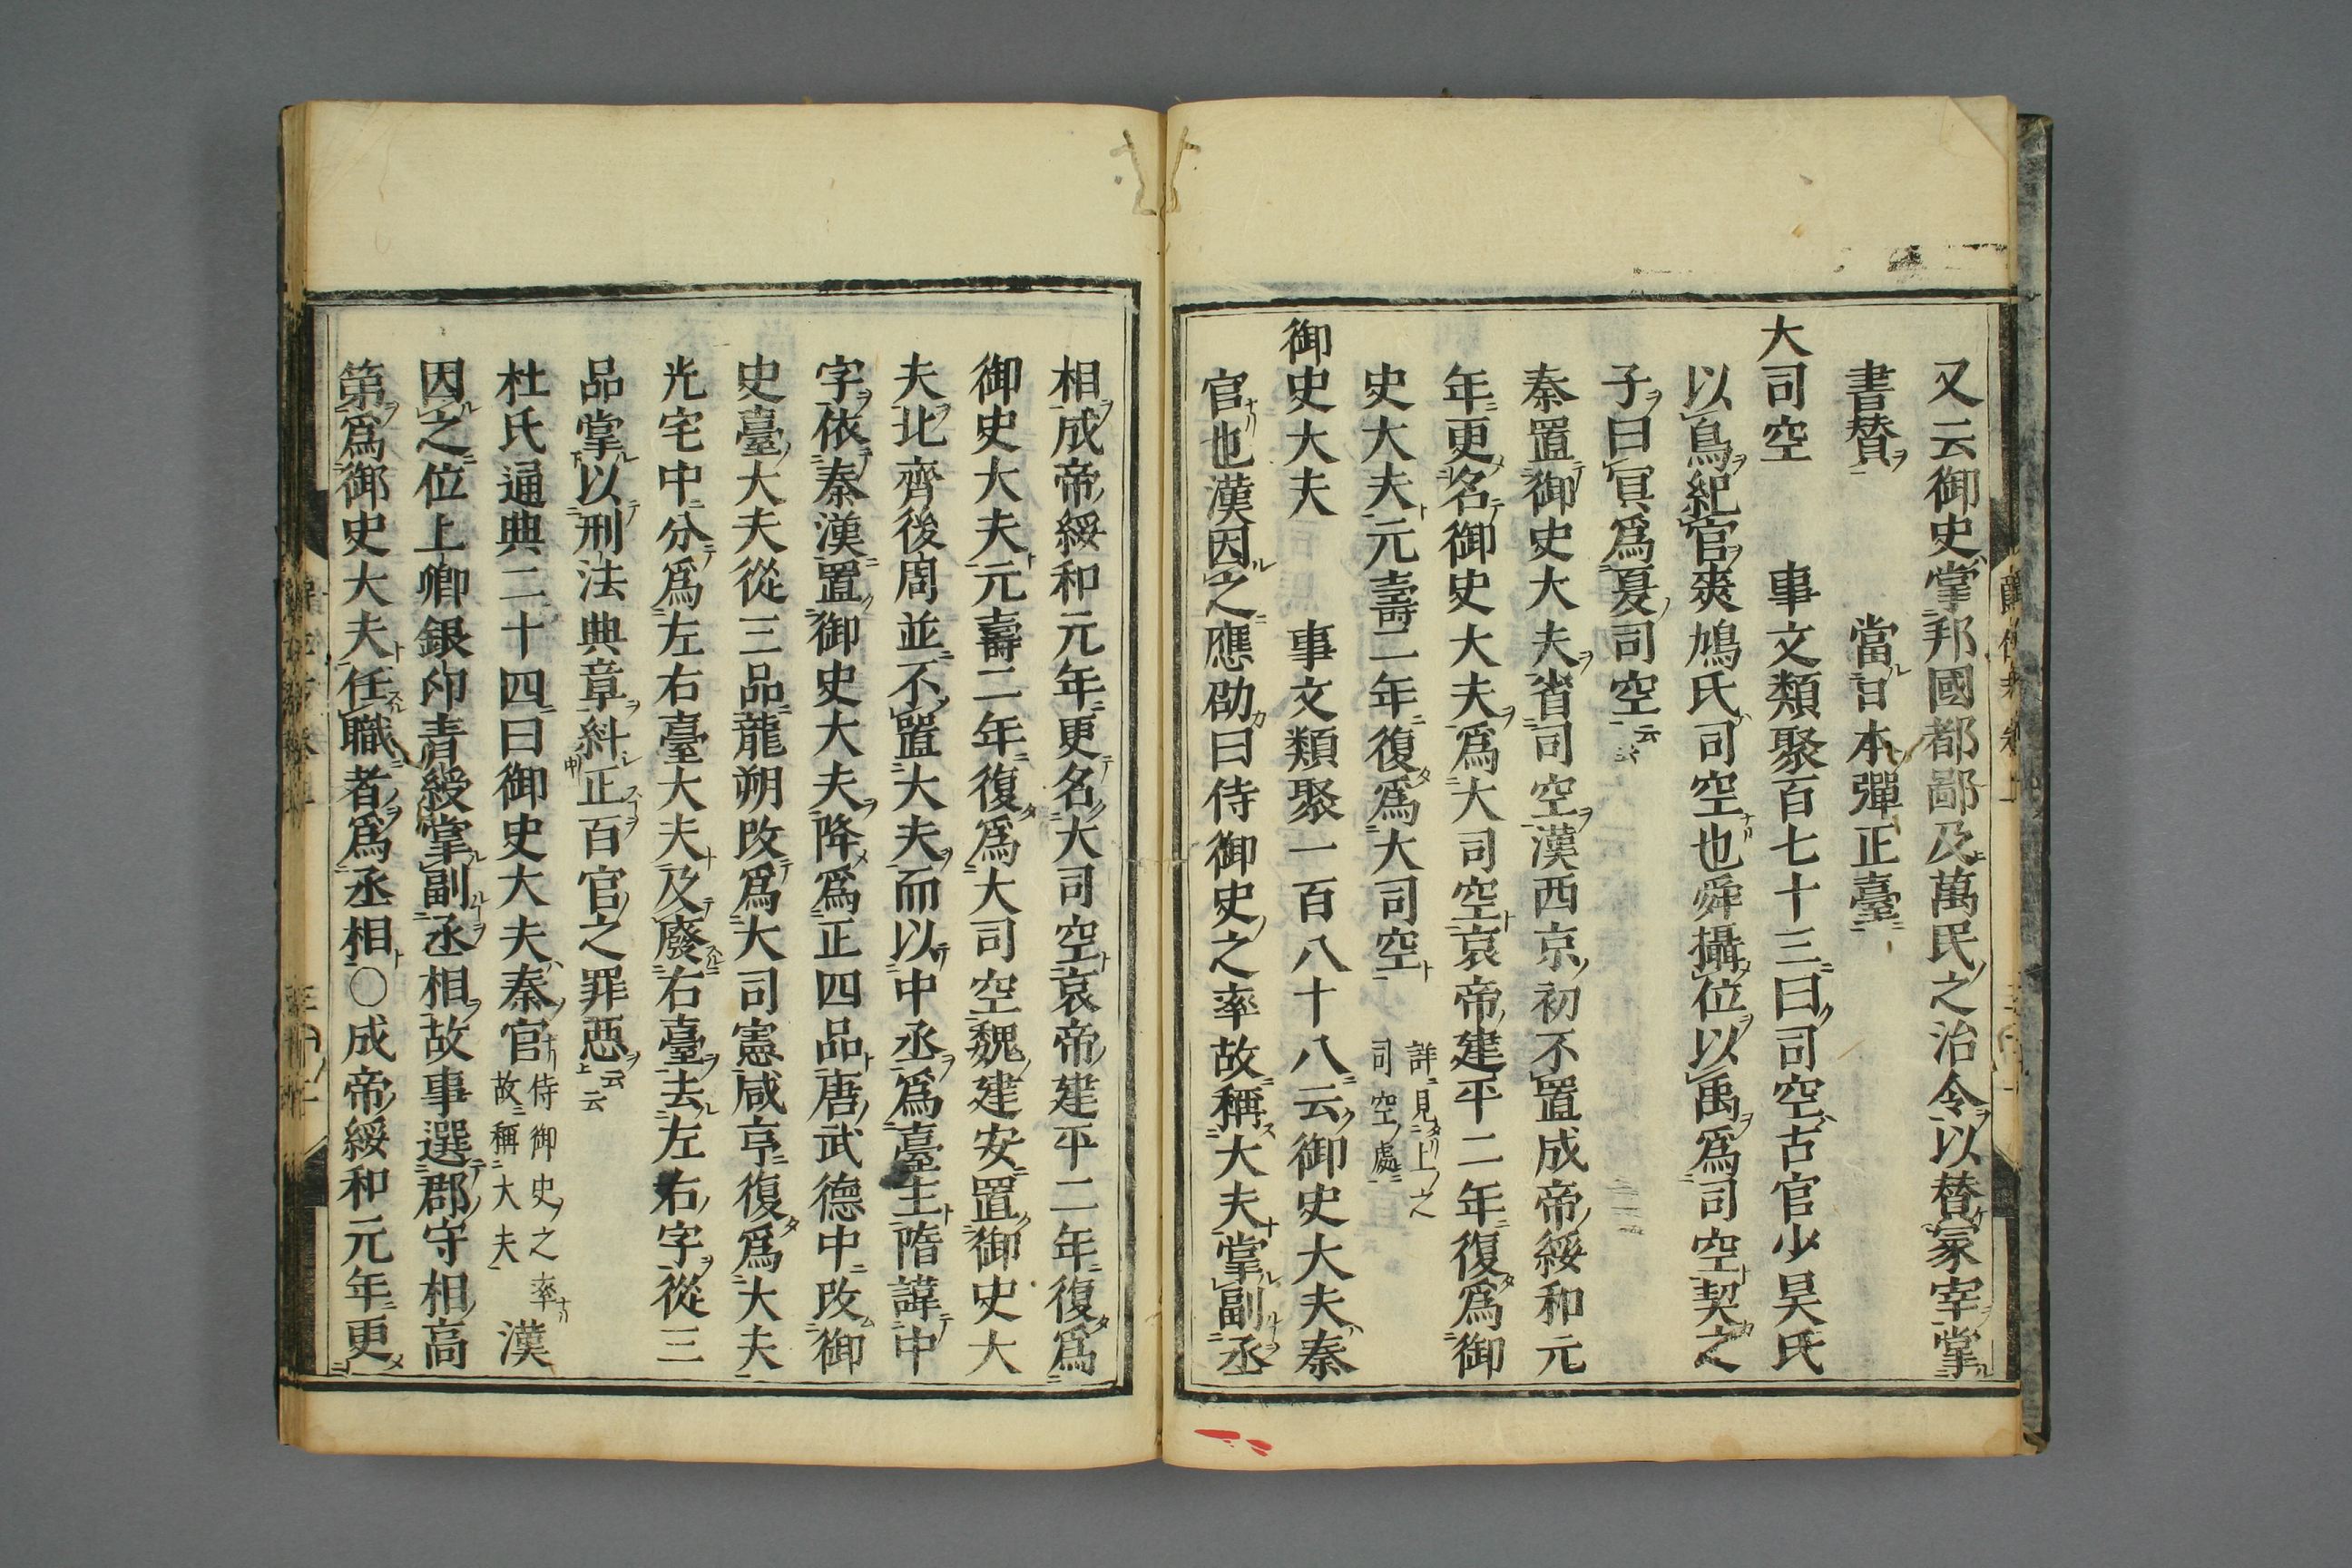 又云御史掌邦國都鄙及萬民之治令以替冢宰掌
書替　　當日本彈正臺
大司空　　事文類聚百七十三曰司空古官少昊氏
以鳥紀官爽鳩氏司空也舜攝位以禹爲司空契之
子曰冥爲夏司空云云
秦置御史大夫省司空漢西京初不置成帝綏和元
年更名御史大夫爲大司空哀帝建平二年復爲御
史大夫元壽二年復爲大司空　詳見上之司空處
御史大夫　　事文類聚一百八十八云御史大夫秦
官也漢因之應劭曰侍御史之率故稱大夫掌副丞
相成帝綏和元年更名大司空哀帝建平二年復爲
御史大夫元壽二年復爲大司空魏建安置御史大
夫北齊後周並不置大夫而以中丞爲臺主隋諱中
字依秦漢置御史大夫降爲正四品唐武德中改御
史臺大夫從三品龍朔改爲大司憲咸亨復爲大夫
光宅中分爲左右臺大夫及廢右臺去左右字從三
品掌以刑法典章糾正百官之罪惡云云
杜氏通典二十四曰御史大夫秦官侍御史之率故稱大夫漢
因之位上卿銀印青綬掌副丞相故事選郡守相高
第爲御史大夫任職者爲丞相○成帝綏和元年更